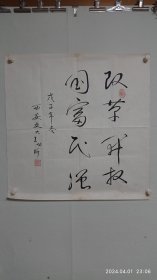 改革开放
国富民强
戊子年冬
西安
2024.04.01 23:06